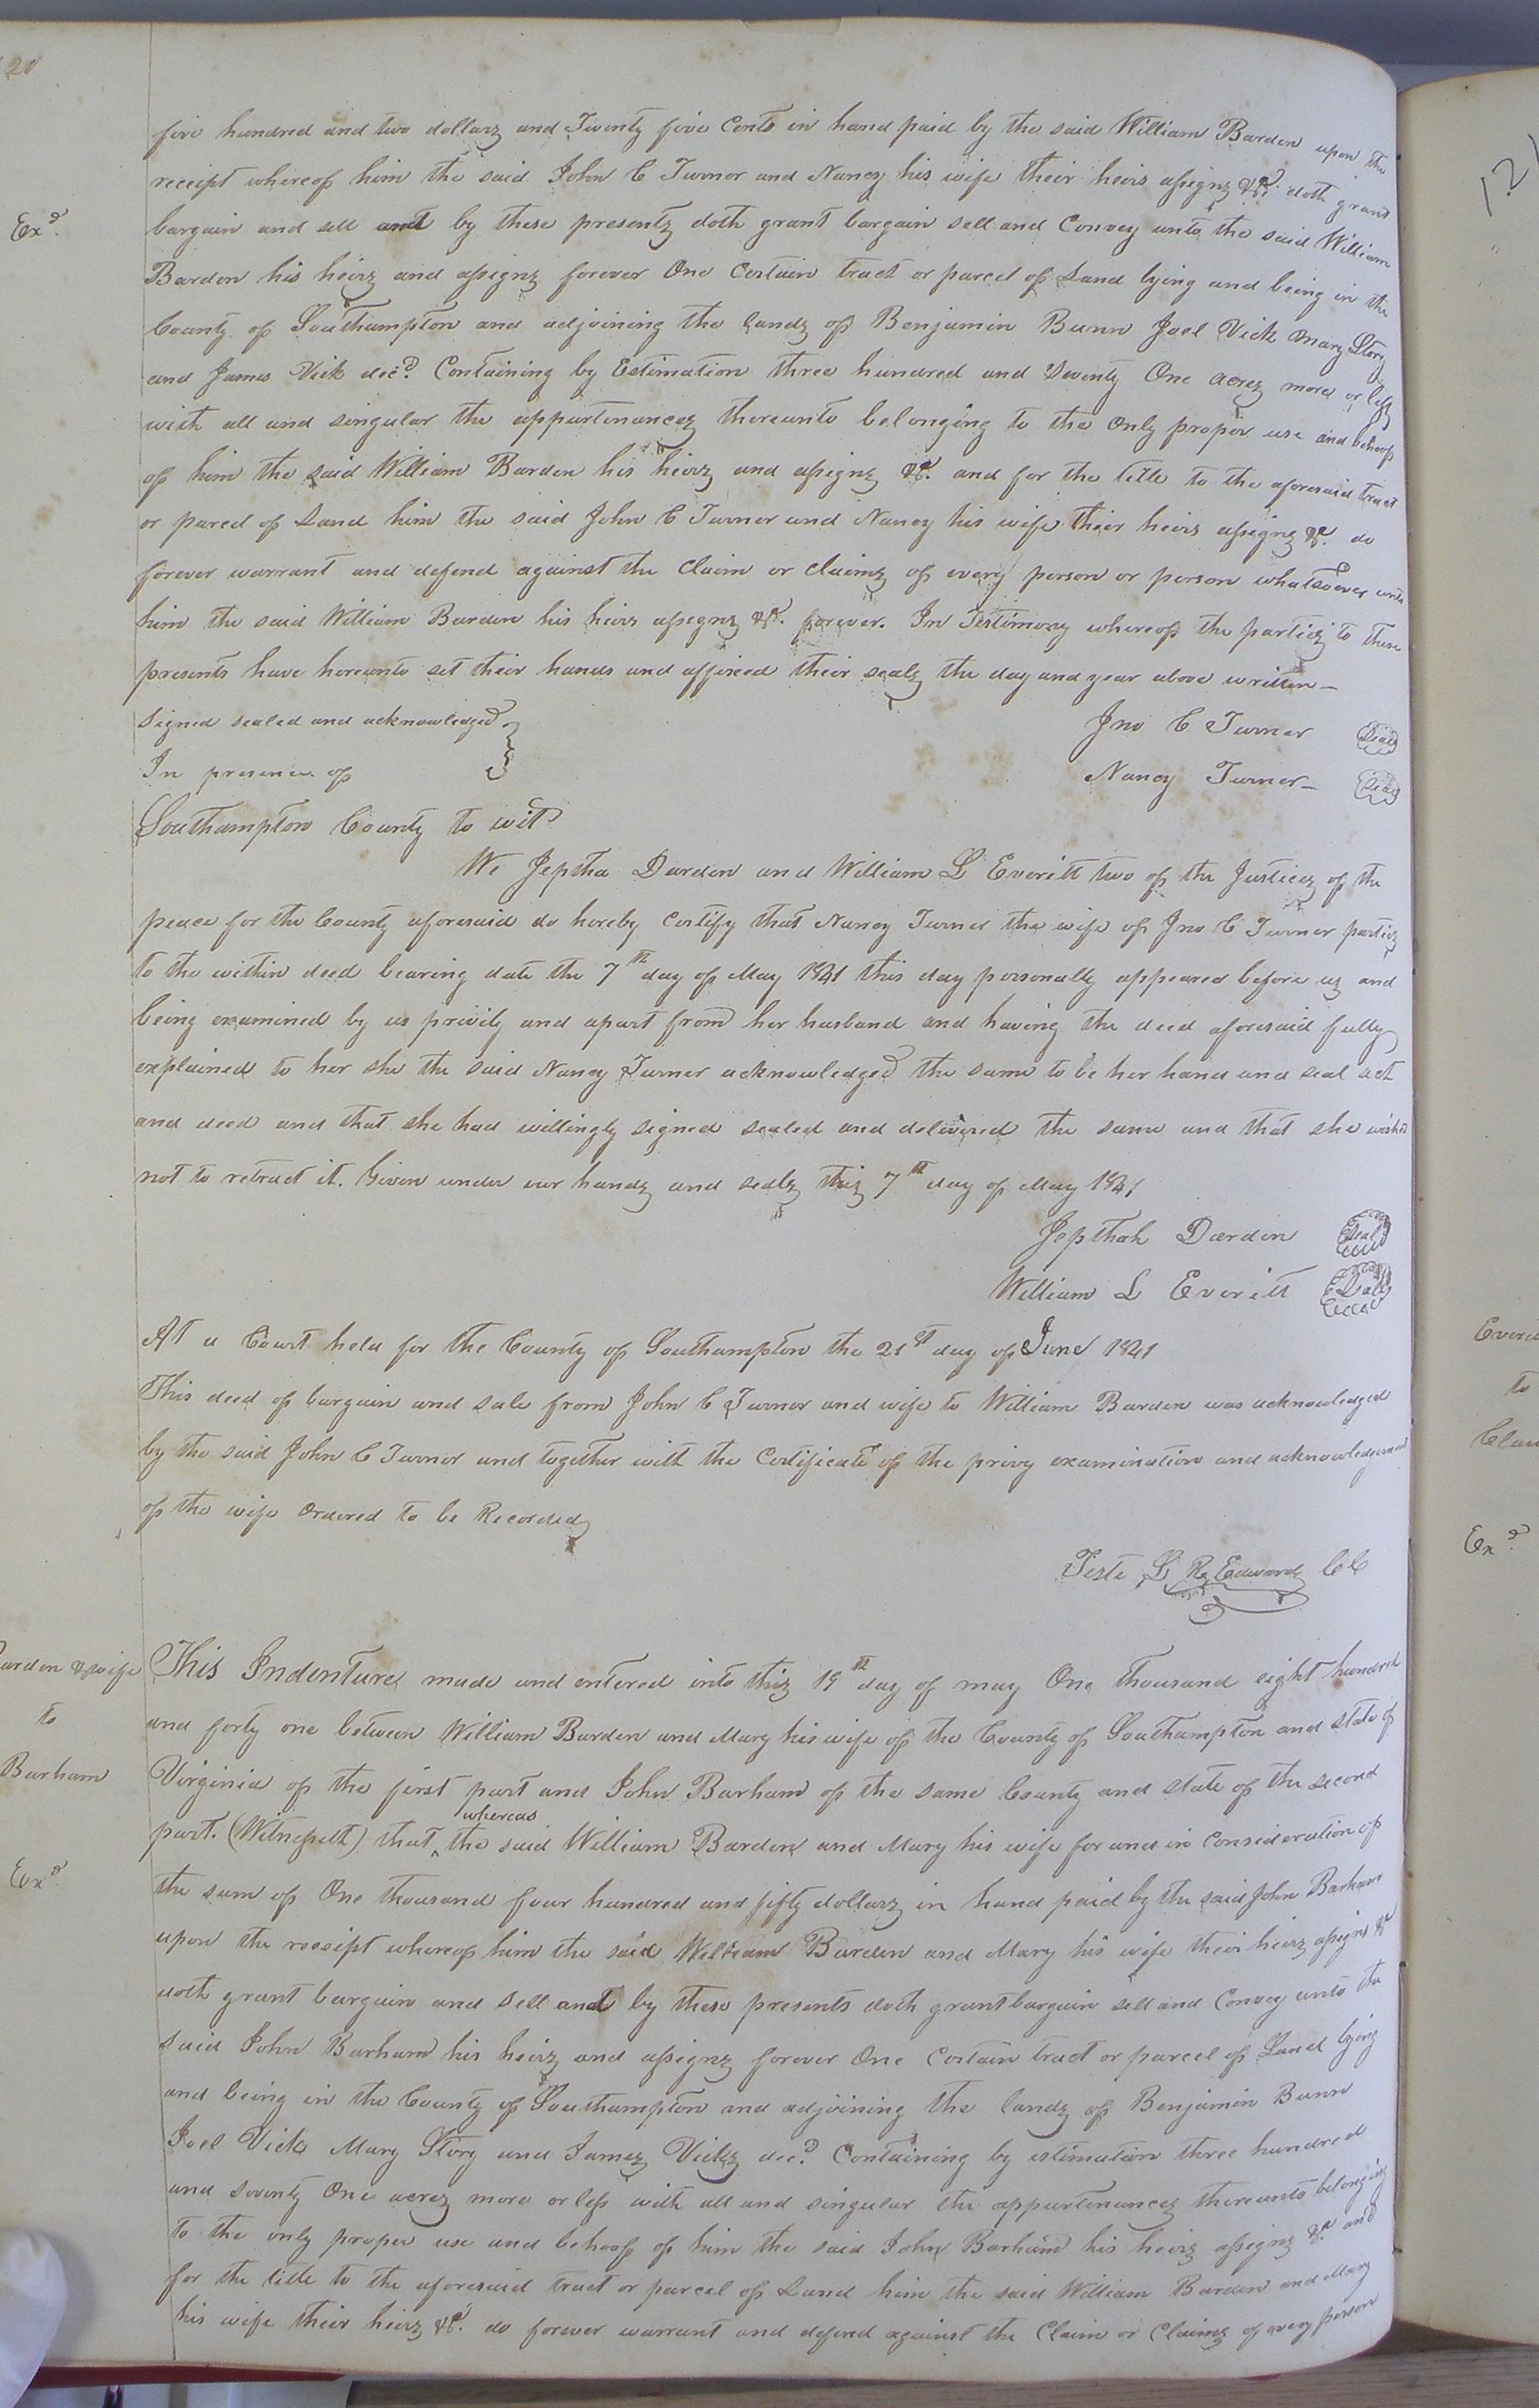 five hundred and two dollars and Twenty five Cents in hand paid by the said William Barden upon the
receipt whereof him the said John C Turner and Nancy his wife their heirs assigns &c. doth grant
Exd.
bargain and sell and by these presents doth grant bargain sell and Convey unto the said William
Barden his heirs and assigns forever One Certain tract or parcel of Land lying and being in the
County of Southampton and adjoining the lands of Benjamin Bunn Joel Vick Mary Story
and James Vick decd. Containing by Estimation three hundred and Seventy One acres more or less
with all and singular the appurtenances thereunto belonging to the only proper use and behoof
of him the said William Barden his heirs and assigns &c. and for the title to the aforesaid tract
or parcel of Land him the said John C Turner and Nancy his wife their heirs assigns &c. do
forever warrant and defend against the Claim or claims of every person or person whatsoever unto
him the said William Barden his heirs assigns &c. forever. In Testimony whereof the parties to these
presents have hereunto set their hands and affixed their seals the day and year above written—
Signed sealed and acknowledged
In presence of
Jno C Turner Seal
Nancy Turner— Seal
Southampton County to wit
We Jeptha Darden and William L Everitt two of the Justices of the
peace for the County aforesaid do hereby certify that Nancy Turner the wife of Jno C Turner parties
to the within deed bearing date the 7th day of May 1841 this day personally appeared before us and
being examined by us privily and apart from her husband and having the deed aforesaid fully
explained to her she the said Nancy Turner acknowledged the same to be her hand and seal act
and deed and that she had willingly signed sealed and delivered the same and that she wished
not to retract it. Given under our hands and seals this 7th day of May 1841
Jepthah Darden Seal
William L Everitt Seal
At a Court held for the County of Southampton the 21st day of June 1841
This deed of bargain and sale from John C Turner and wife to William Barden was acknowledged
by the said John C Turner and together with the Certificate of the privy examination and acknowledgement
of the wife Ordered to be Recorded
Teste L R Edwards CC
arden & wife
to
Barham
Exd.
This Indenture made and entered into this 19th day of may One thousand eight hundred
and forty one between William Barden and Mary his wife of the County of Southampton and state of
Virginia of the first part and John Barham of the same County and state of the second
part. (Witnesseth) that whereas the said William Barden and Mary his wife for and in Consideration of
the sum of One thousand four hundred and fifty dollars in hand paid by the said John Barham
upon the receipt whereof him the said William Barden and Mary his wife their heirs assigns &c
doth grant bargain and Sell and by these presents doth grant bargain sell and Convey unto the
said John Barham his heirs and assigns forever One Certain tract or parcel of Land lying
and being in the County of Southampton and adjoining the lands of Benjamin Bunn
Joel Vicks Mary Story and James Vicks decd. Containing by estimation three hundred
and seventy One acres more or less with all and singular the appurtenances thereunto belonging
to the only proper use and behoof of him the said John Barham his heirs assigns &c. and
for the title to the aforesaid tract or parcel of Land him the said William Barden and Mary
his wife their heirs &c. do forever warrant and defend against the Claim or Claims of every person
121
to
Exd.